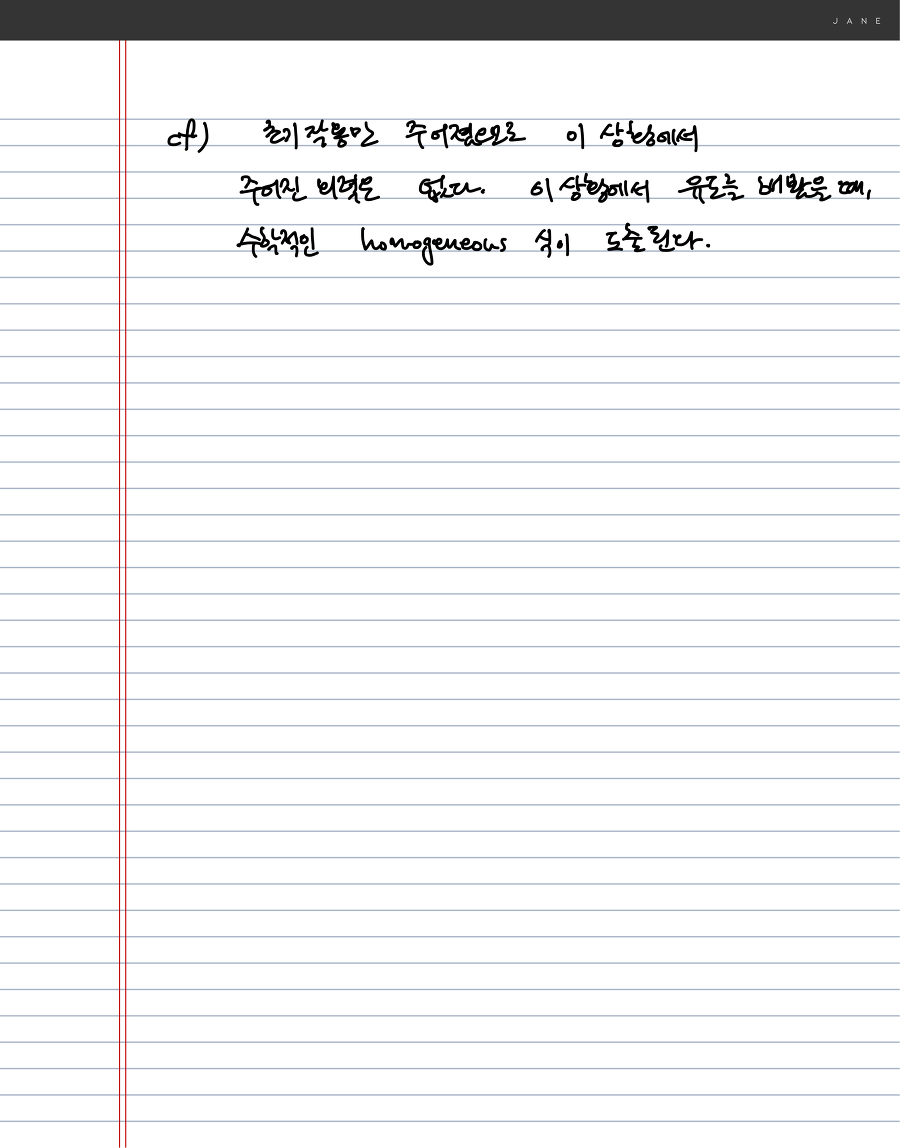 JANE
cf) 초기 작용만 주어졌으므로 이 상황에서
주어진 외력은 없다. 이 상황에서 유도를 해봤을 때,
수학적인 homogeneous 식이 도출된다.